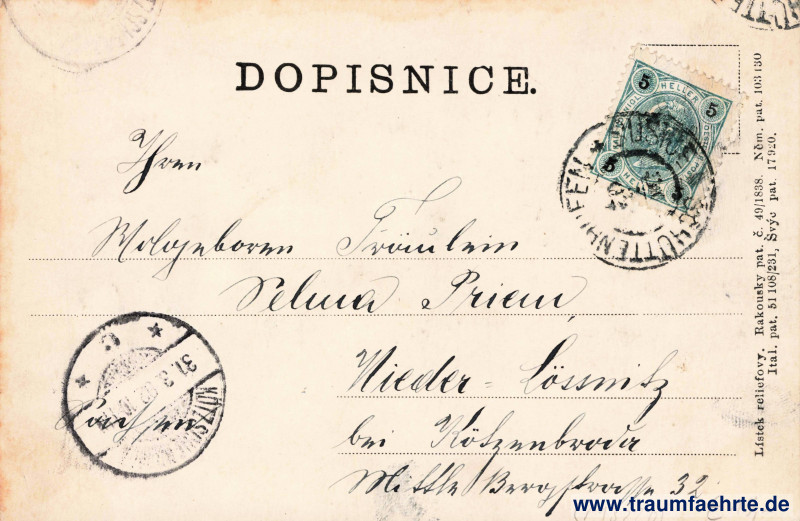 DOPISNICE.
5 HELLER 5
5
HÜTTENHOFEN
Ihren
Wolgeboren Fräulein
Selma Priem,
Nieder-Lössnitz
Sachsen
bei Kötzenbroda
Mittle Bergstrasse 32
31.3.
Lístek reliefovy. Rakousky pat. č. 49/1838. Něm. pat. 103430
Ital. pat. 51108/231, Švýc pat. 17920.
www.traumfaehrte.de